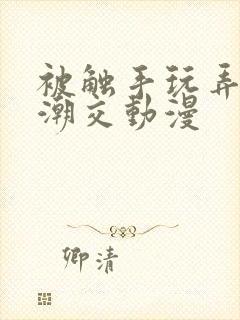 被触手玩弄
潮交動漫
卿清